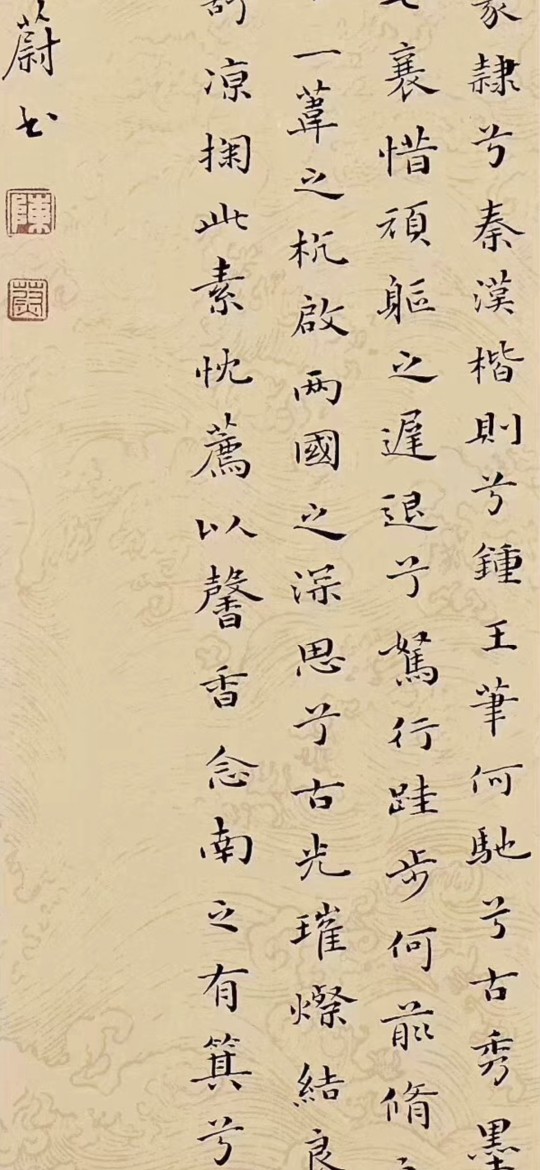 隸兮秦漢楷則兮鍾王筆何馳兮古秀墨
襄惜頑軀之遲退兮駑行跬步何前脩
一葦之杭啟兩國之深思兮古光璀燦結良
凉掬此素忱薦以馨香念南之有箕兮
蔚书
陳
蔚